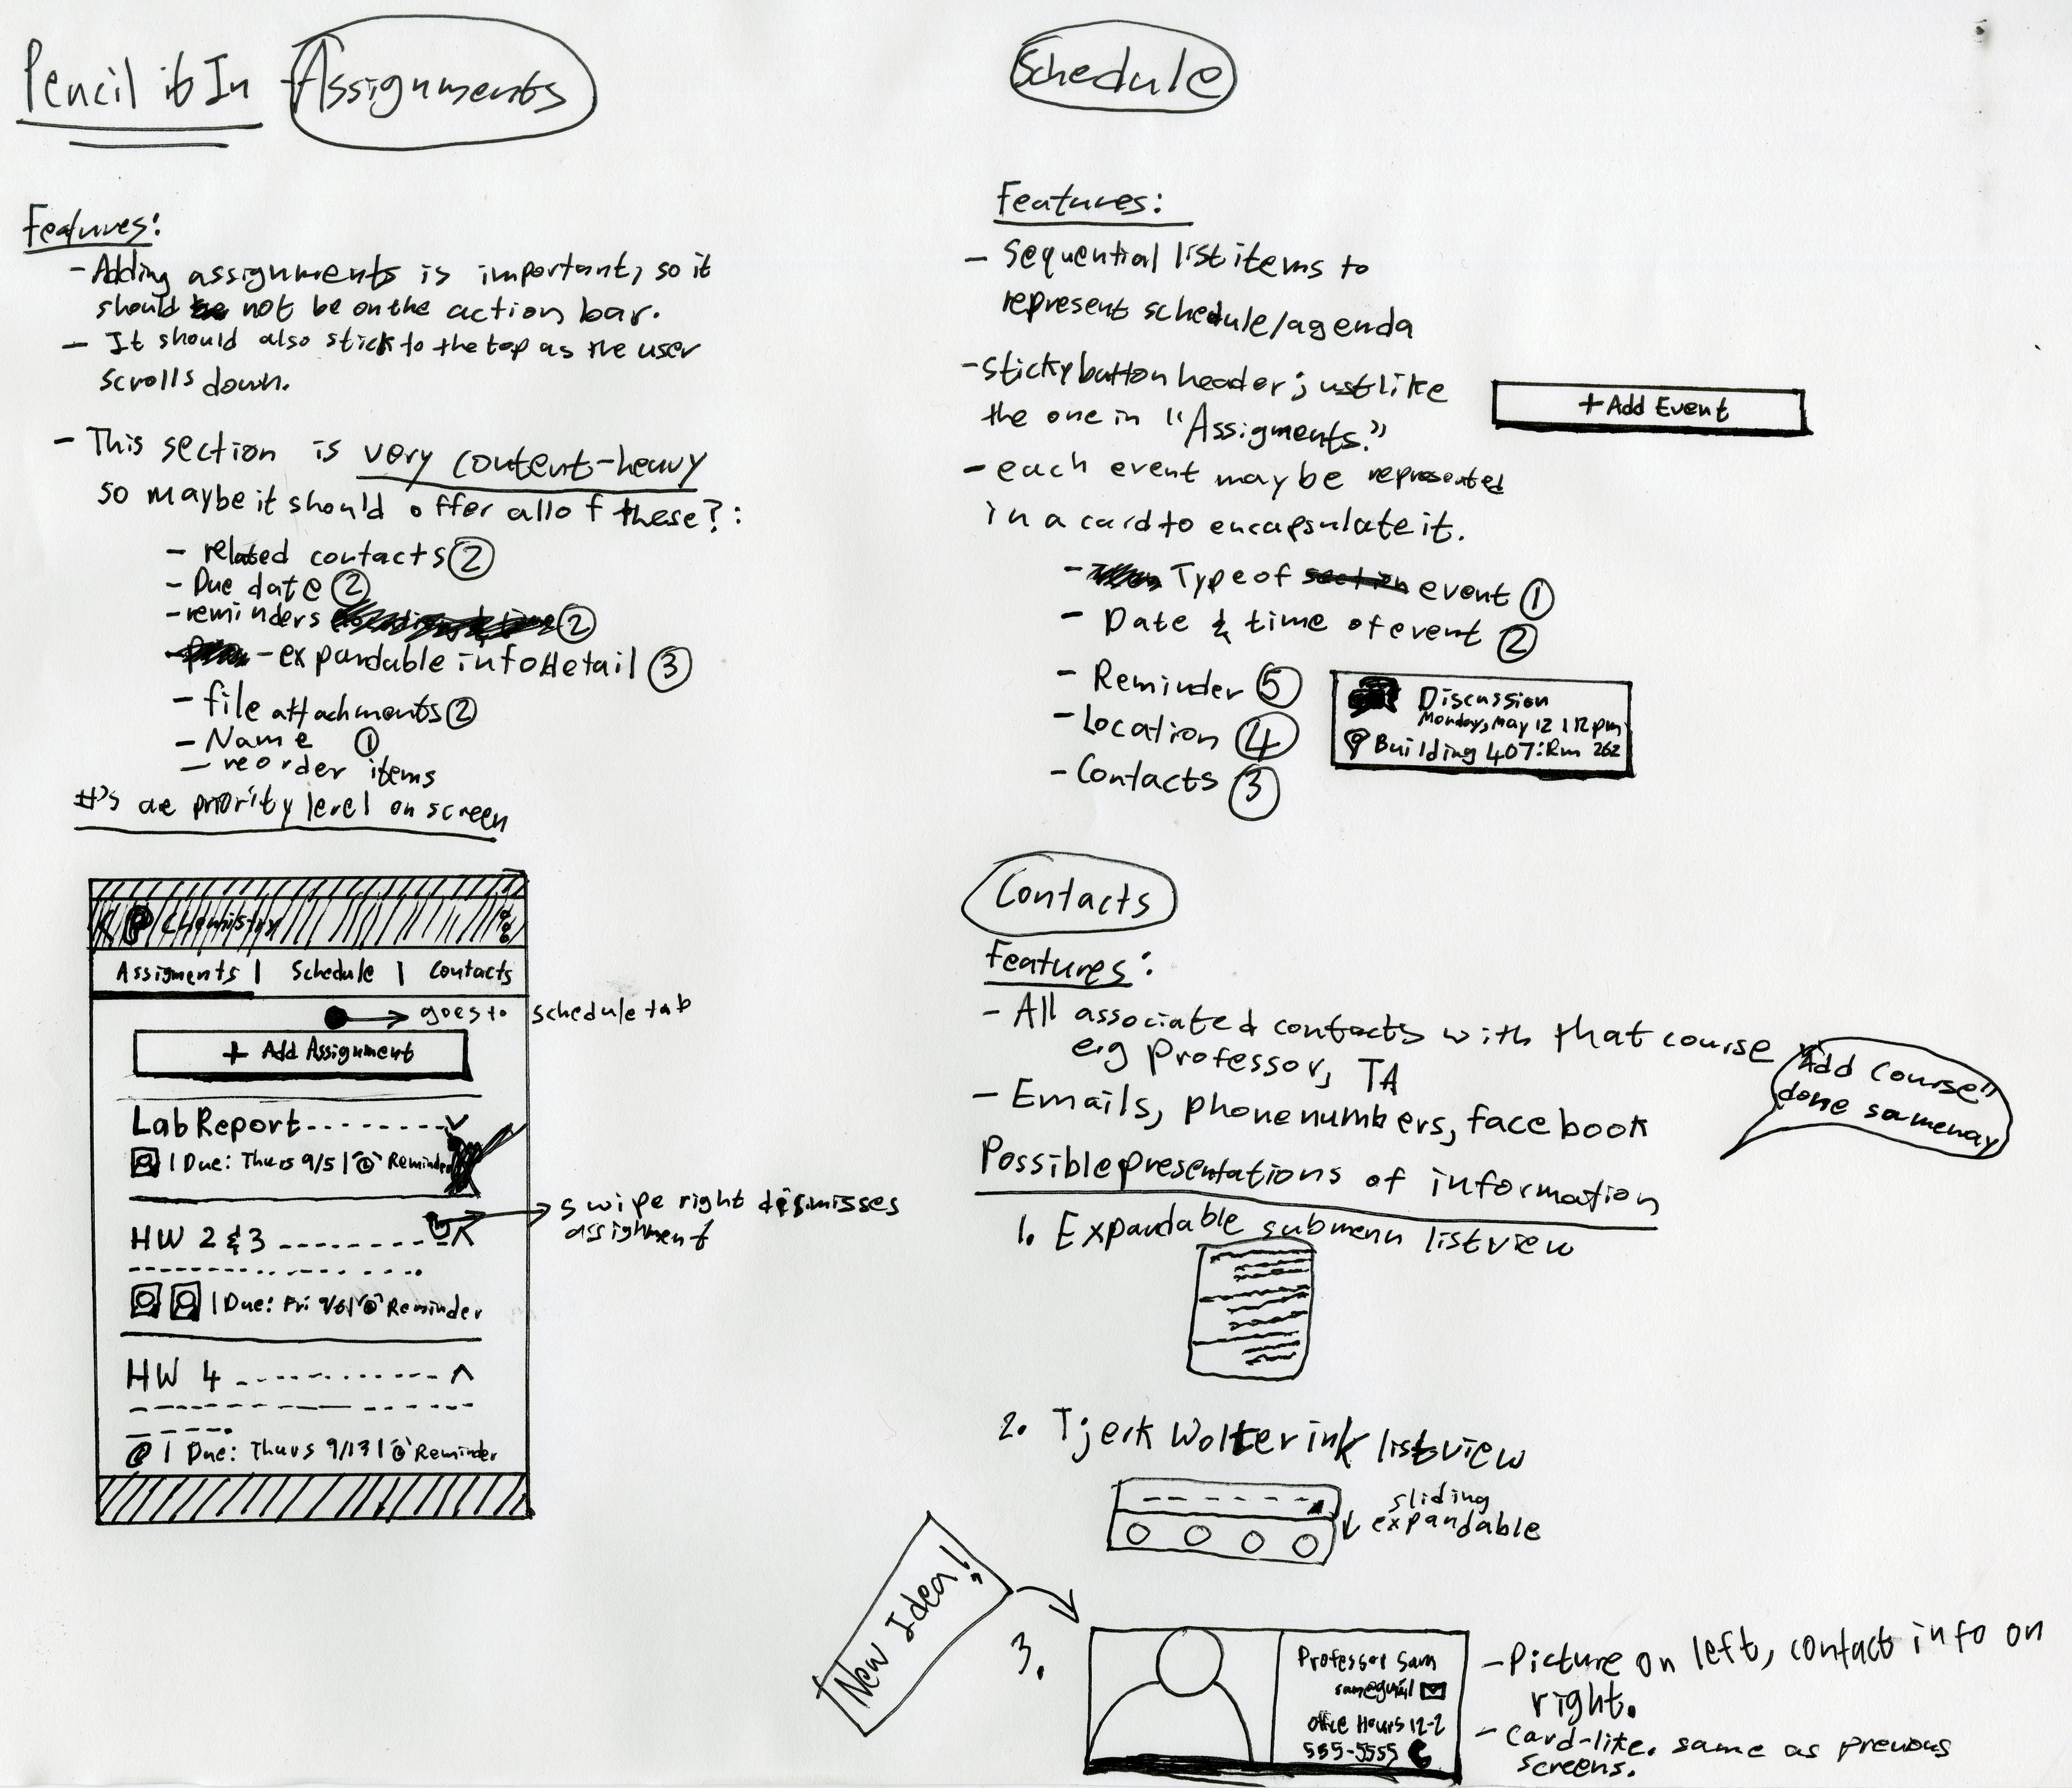 Pencil it In Assignments
Features:
- Adding assignments is important, so it
should not be on the action bar.
- It should also stick to the top as the user
scrolls down.
- This section is very content-heavy
so maybe it should offer all of these?:
- related contacts ②
- Due date ②
- reminders ②
- expandable info detail ③
- file attachments ②
- Name ①
- reorder items
#'s are priority level on screen
Chemistry
Assigments | Schedule | Contacts
goes to schedule tab
+ Add Assignment
Lab Report
| Due: Thurs 9/5 | Reminder
swipe right dismisses
assignment
HW 2 & 3
| Due: Fri 9/6 | Reminder
HW 4
| Due: Thurs 9/13 | Reminder
Schedule
Features:
- Sequential list items to
represent schedule/agenda
- sticky button header; just like
the one in "Assigments."
+ Add Event
- each event may be represented
in a card to encapsulate it.
- Type of section event ①
- Date & time of event ②
- Reminder ⑤
- Location ④
- Contacts ③
Discussion
Monday, May 12 | 12pm
Building 407: Rm 262
Contacts
Features:
- All associated contacts with that course
e.g professor, TA
"Add Course"
done same way
- Emails, phone numbers, facebook
Possible presentations of information
1. Expandable submenu listview
2. Tjerk Wolterink listview
sliding
expandable
New Idea!
3.
Professor Sam
Office Hours 12-2
555-5555
- Picture on left, contact info on
right.
- Card-like. same as previous
screens.